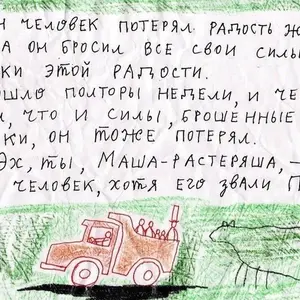 Н ЧЕЛОВЕК ПОТЕРЯЛ РАДОСТЬ Ж
А ОН БРОСИЛ ВСЕ СВОИ СИЛЫ
КИ ЭТОЙ РАДОСТИ.
ОШЛО ПОЛТОРЫ НЕДЕЛИ, И ЧЕ
Л, ЧТО И СИЛЫ, БРОШЕННЫЕ
КИ, ОН ТОЖЕ ПОТЕРЯЛ.
ЭХ, ТЫ, МАША-РАСТЕРЯША, —
ЧЕЛОВЕК, ХОТЯ ЕГО ЗВАЛИ П